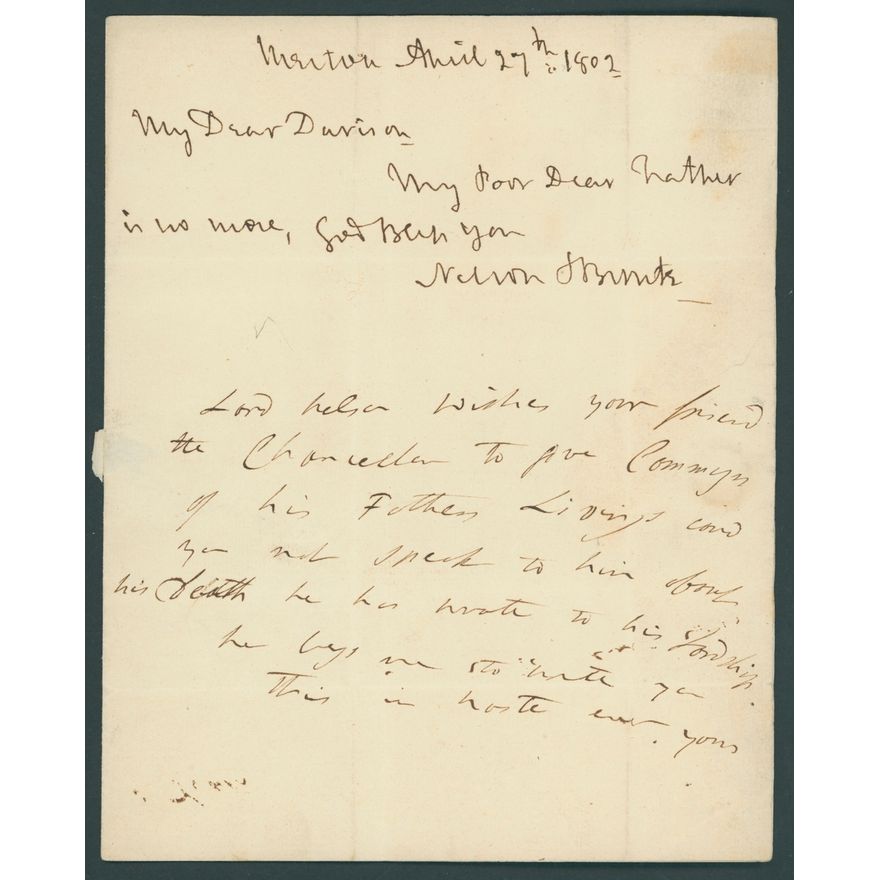 Merton April 27th: 1802
My Dear Davison
My Poor Dear Father
is no more, God Bless you
Nelson & Bronte
Lord Nelson wishes your friend
the Chancellor to give
of his Fathers Livings coud
you not speak to him about
his Death he has wrote to his Lordship.
he begs me to write you
this in haste ever yours